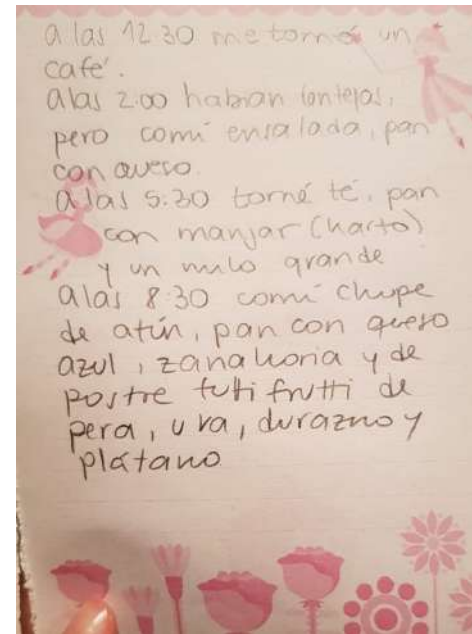 a las 12:30 me tomé un
café.
a las 2:00 habian lentejas,
pero comí ensalada, pan
con queso.
a las 5:30 tomé té, pan
con manjar (harto)
y un milo grande
a las 8:30 comí chupe
de atún, pan con queso
azul, zanahoria y de
postre tutti frutti de
pera, uva, durazno y
plátano